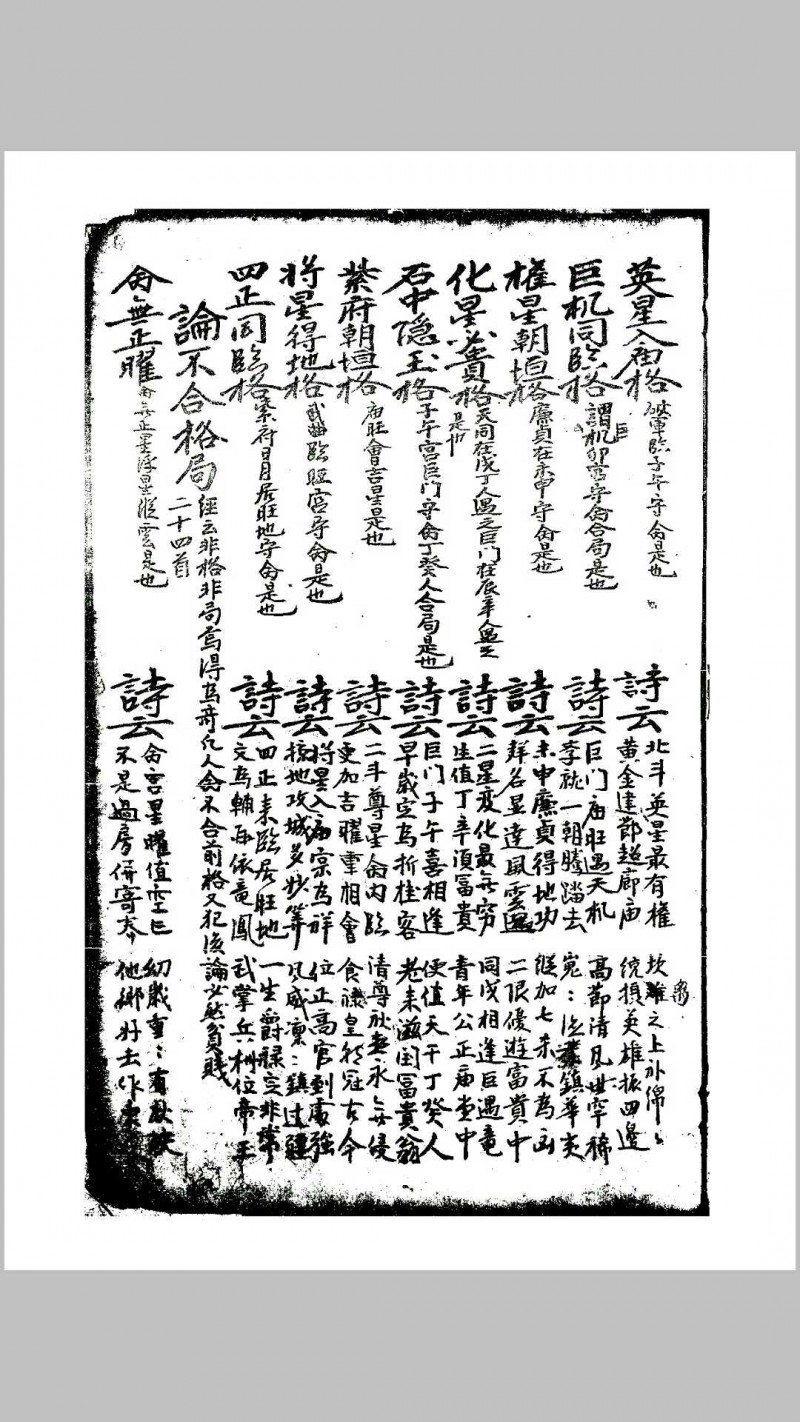 英星入庙格 破軍臨子午守命是也
詩云
北斗英星最有權 坎離之上福綿綿
黄金建節超廊庙 統摂英雄振四邊
巨机同臨格 謂巨机卯宮守命合局是也
詩云
巨门庙旺遇天机 高節清风世罕稀
李就一朝騰踏去 巍巍 鎮華夷
權星朝垣格 廉貞在未申守命是也
詩云
未申廉貞得地功 縱加七杀不為凶
声名显達風雲 二限優遊富貴中
化星 貴格 天同在戌丁人遇之巨门在辰辛人遇之是也
詩云
二星变化最無窮 同戌相逢巨遇竜
生值丁辛湏富貴 青年公正庙堂中
石中隐玉格 子午宮巨门守命丁癸人合局是也
詩云
巨门子午喜相逢 便值天干丁癸人
早歲定為折桂客 老来滋国富貴翁
紫府朝垣格 庙旺會吉星是也
詩云
二斗尊星命内臨 清尊 無永無侵
更加吉曜重相會 食祿皇 冠古今
将星得地格 武曲臨旺宮守命是也
詩云
将星入庙 為祥 位正高官到處強
掠地攻城多妙筭 凡威凛凛鎮边疆
四正同臨格 紫府日月居旺地守命是也
詩云
四正来臨居旺地 一生爵禄定非常
文為輔 依竜鳳 武掌兵 位帝王
論不合格局 二十四首
經云非格非局焉得為奇凡人命不合前格又犯後論必然貧賤
命無正曜 命無正星 是也
詩云
命宮星曜值空亡 幼歲重重有
不是過房併寄 他鄉好去作